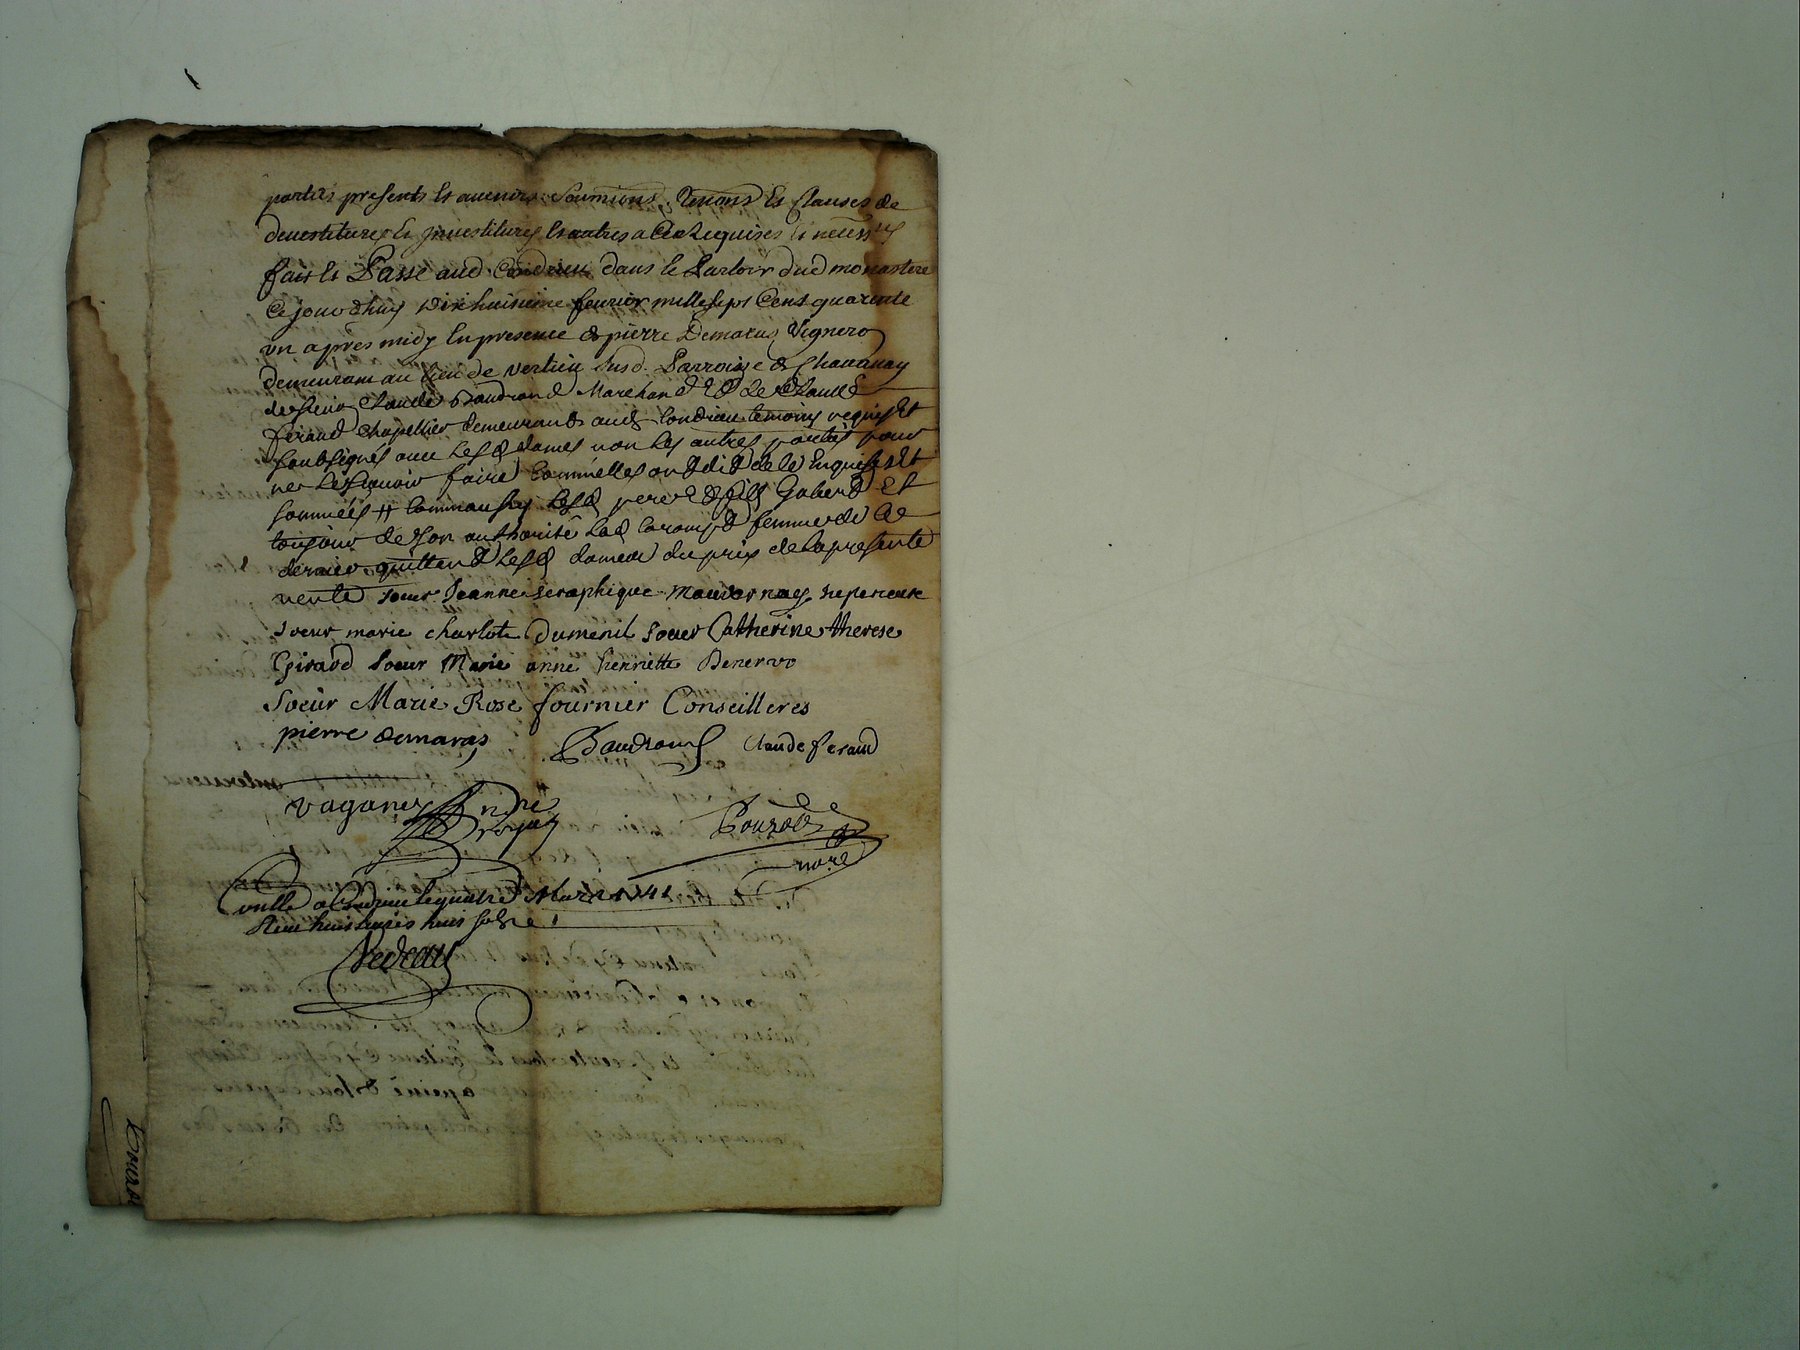 parties presents et avenirs soumissions, Renons et Clauses de
devestitures et jnvestitures et autres a Ce Requises et necessres
fait et Passé aud Condrieu dans le Parloir dud monastere
Ce jourdhuy dix huitieme fevrier mille sept Cent quarente
un apres midy En presence de pierre Demaras Vigneron
demeurant au lieu de Verlieu susd. Parroisse de Chavanay
de sieur Claude Baudrand Marchand Et de Claude
feraud Chapellier demeurants aud Condrieu temoins requis Et
soubsignés avec Lesd dames non les autres parties pour
ne le sçavoir faire Comme elles ont dit de ce Enquises Et
sommées # Comme aussy Lesd pere Et fils Gabert Et
toujours de son authorité lad femme de Ce
dernier quittent Lesd dames du prix de la presente
vente soeur Jeanne seraphique Mauvernay superieure
soeur marie charlote Dumenil soeur Catherine therese
Girard soeur Marie anne henriette Denervo
Soeur Marie Rose fournier Conseilleres
pierre demaras Baudrand Claude feraud
vaganey
nore
Conlle a Condrieu le quatre Mars 1741
Reçu huit livres huit sols
Nedeau